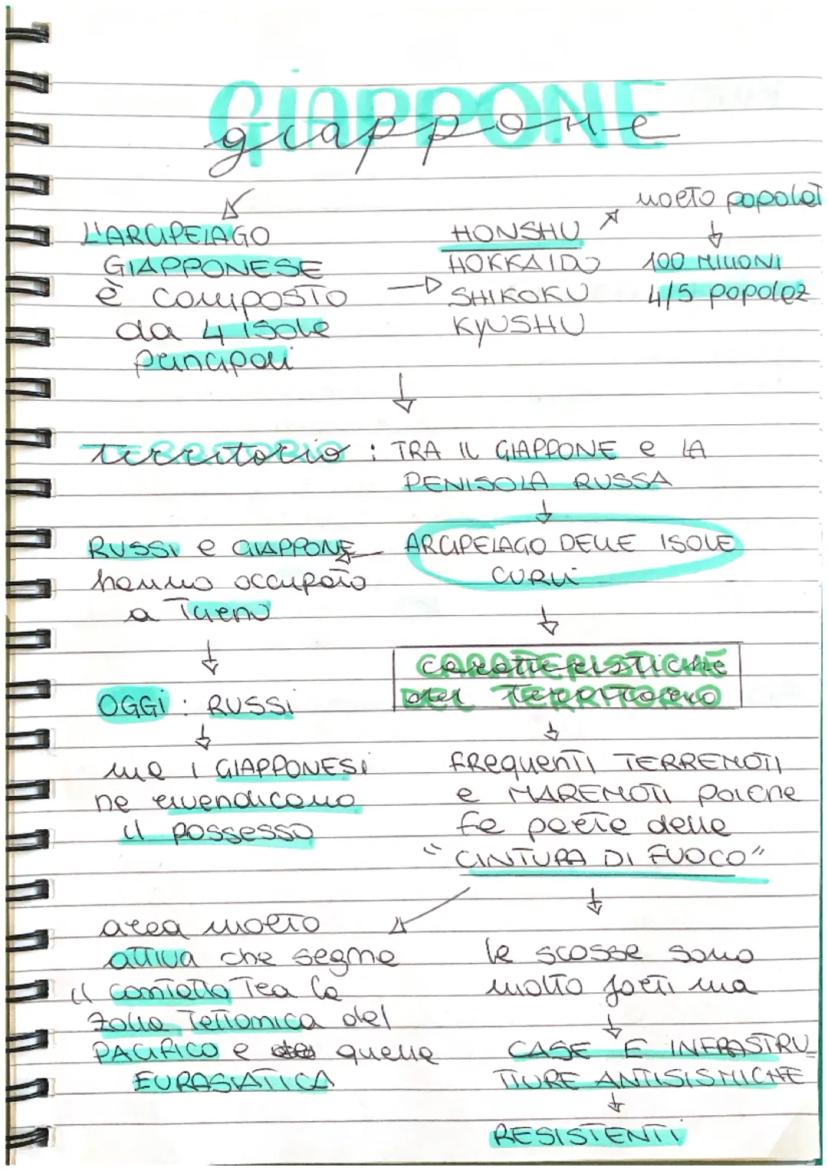 GIAPPONE
giappone
L'ARCIPELAGO
GIAPPONESE
è composto
da 4 isole
principali
HONSHU
HOKKAIDO
SHIKOKU
KYUSHU
molto popolat
100 MILIONI
4/5 popolaz
TERRITORIO
territorio : TRA IL GIAPPONE e LA
PENISOLA RUSSA
ARCIPELAGO DELLE ISOLE
CURILI
RUSSI e GIAPPONE
hanno occupato
a Turno
OGGI : RUSSI
ma i GIAPPONESI
ne rivendicano
il possesso
CARATTERISTICHE
DEL TERRITORIO
caratteristiche
del territorio
frequenti TERREMOTI
e MAREMOTI poiché
fa parte della
"CINTURA DI FUOCO"
area molto
attiva che segna
il contatto tra la
zolla Tettonica del
PACIFICO e quella
EURASIATICA
le scosse sono
molto forti ma
CASE E INFRASTRU_
TTURE ANTISISMICHE
RESISTENTI